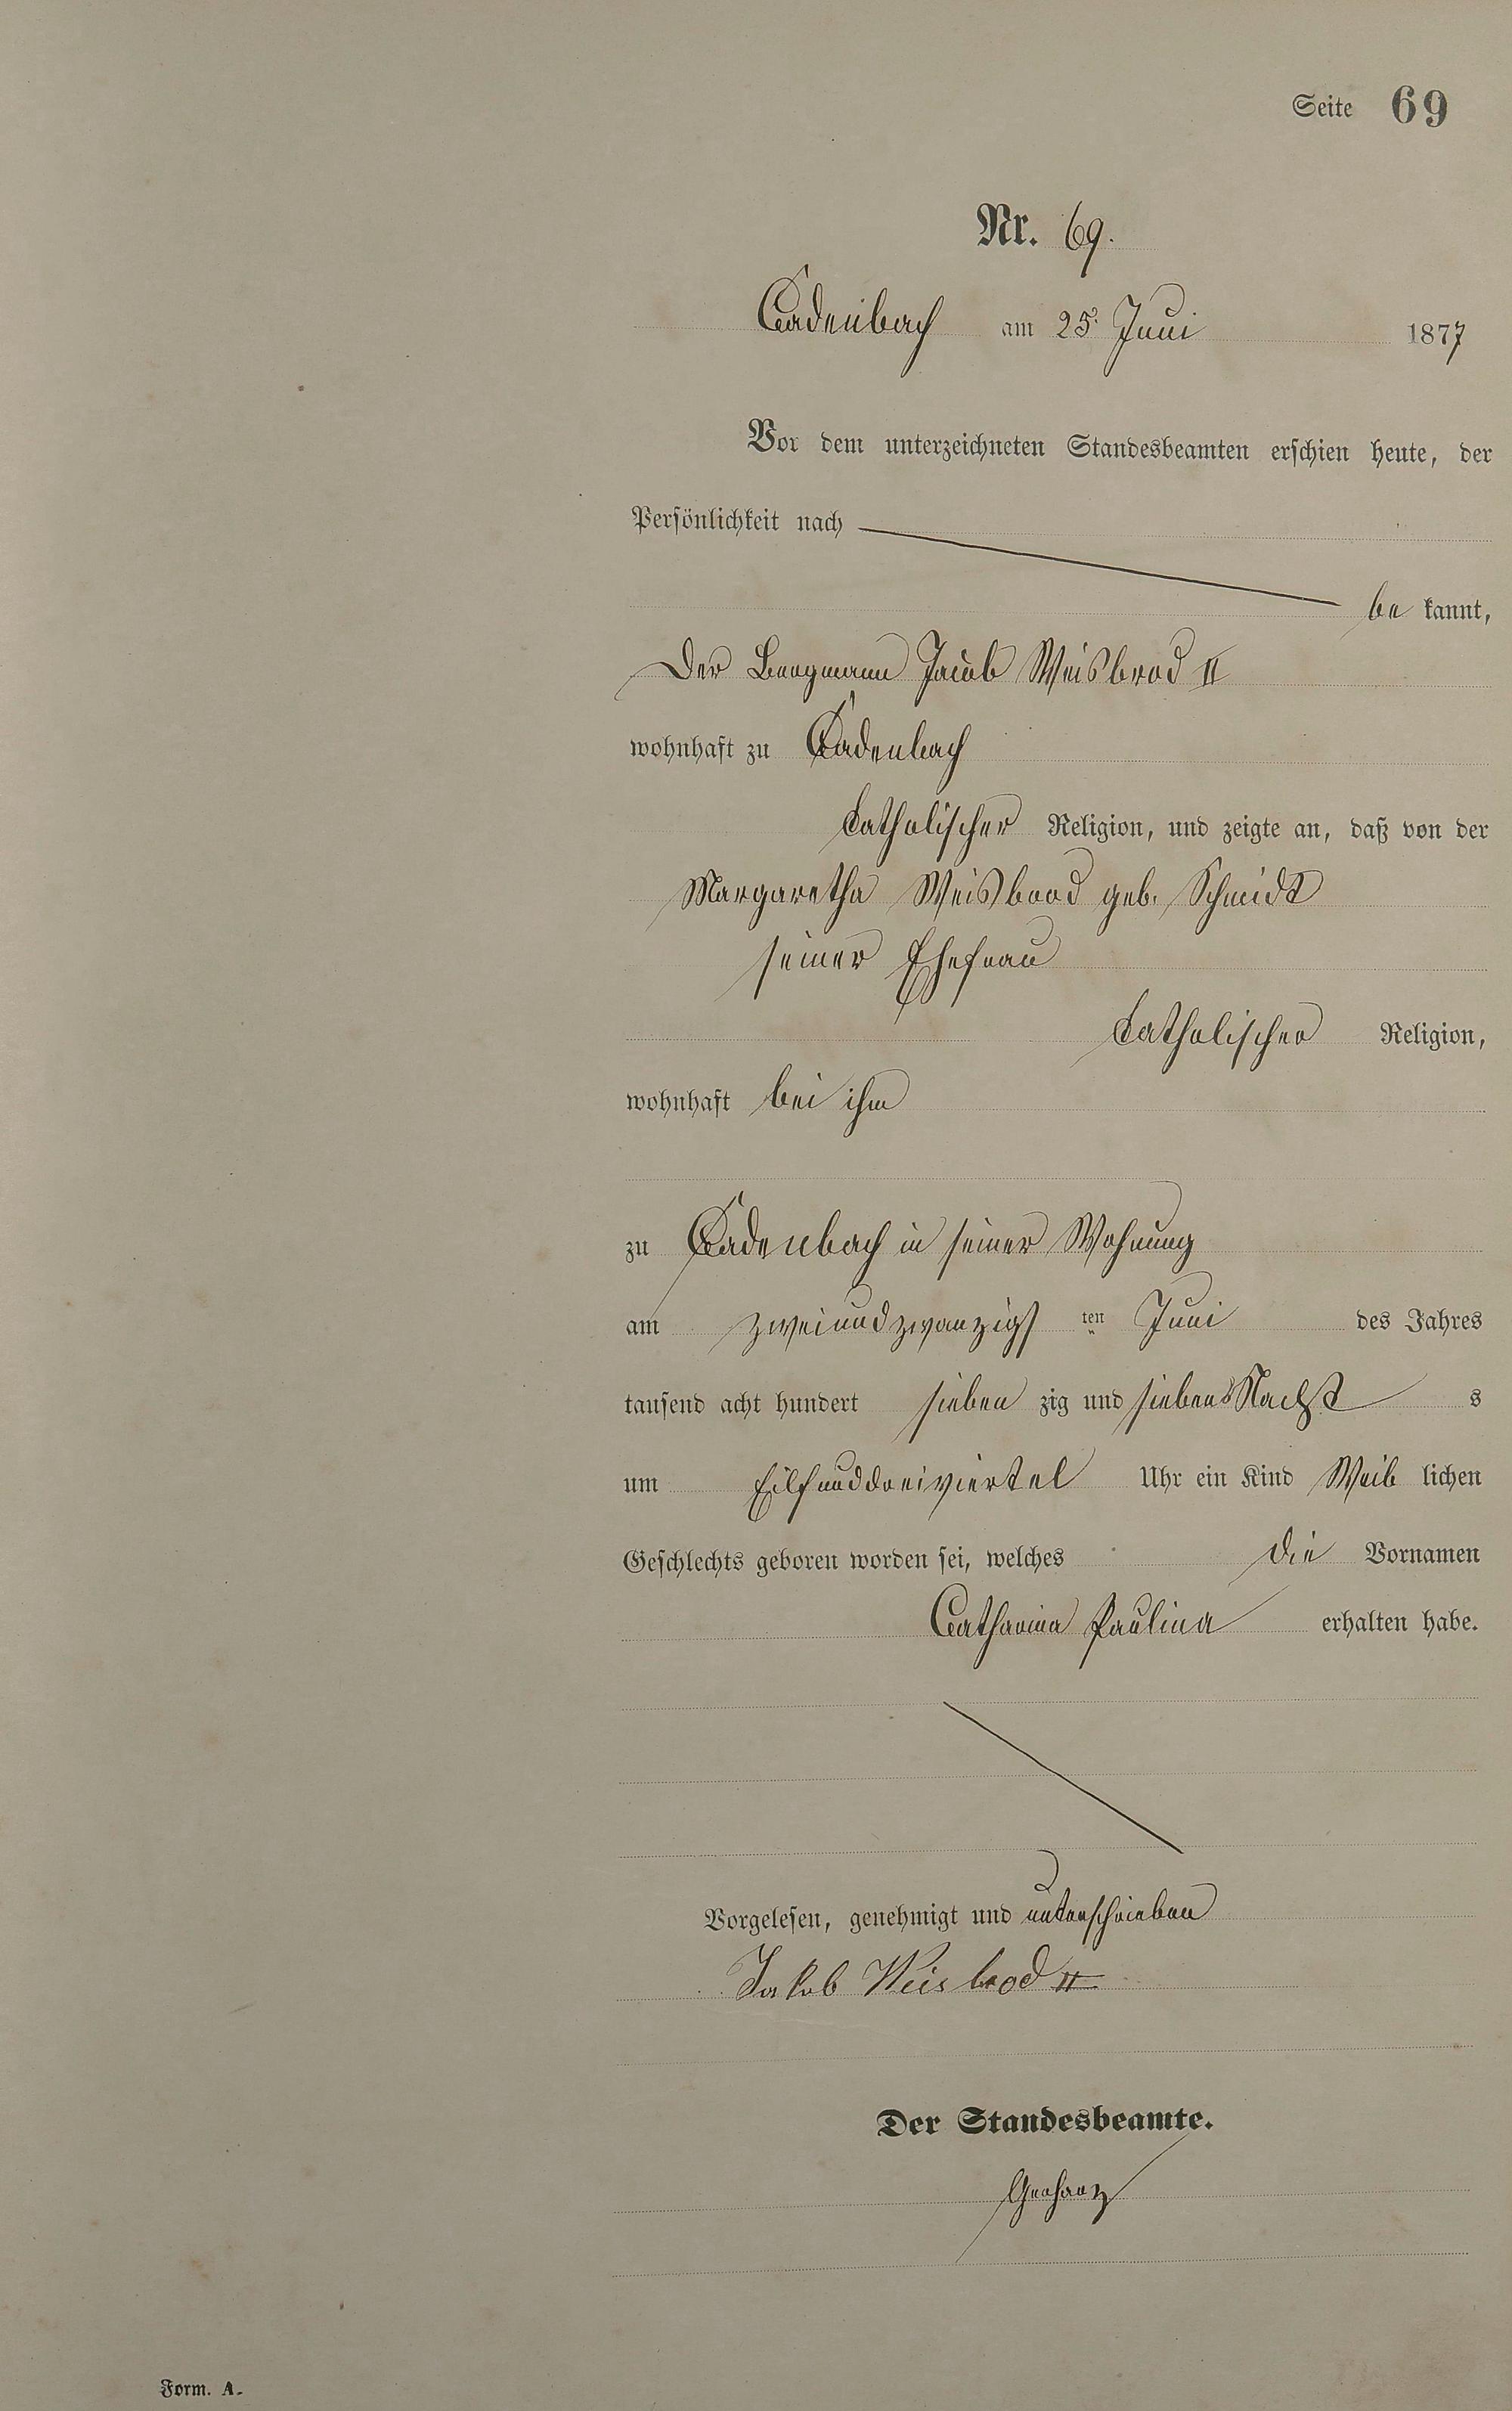 Seite 69
Nr. 69.
Cadenbach am 25. Juni 1877
Vor dem unterzeichneten Standesbeamten erschien heute, der
Persönlichkeit nach
be kannt,
Der Bergmann Jacob Weisbrod II
wohnhaft zu Cadenbach
catholischer Religion, und zeigte an, daß von der
Margaretha Weisbrod geb. Schmidt
seiner Ehefrau
catholischer Religion,
wohnhaft bei ihm
zu Cadenbach in seiner Wohnung
am zweiundzwanzigsten Juni des Jahres
tausend acht hundert sieben zig und sieben Nacht s
um Eilfunddreiviertel Uhr ein Kind Weib lichen
Geschlechts geboren worden sei, welches die Vornamen
Catharina Paulina erhalten habe.
Vorgelesen, genehmigt und unterschrieben
Jakob Weisbrod II
Der Standesbeamte.
Gerharz
Form. A.